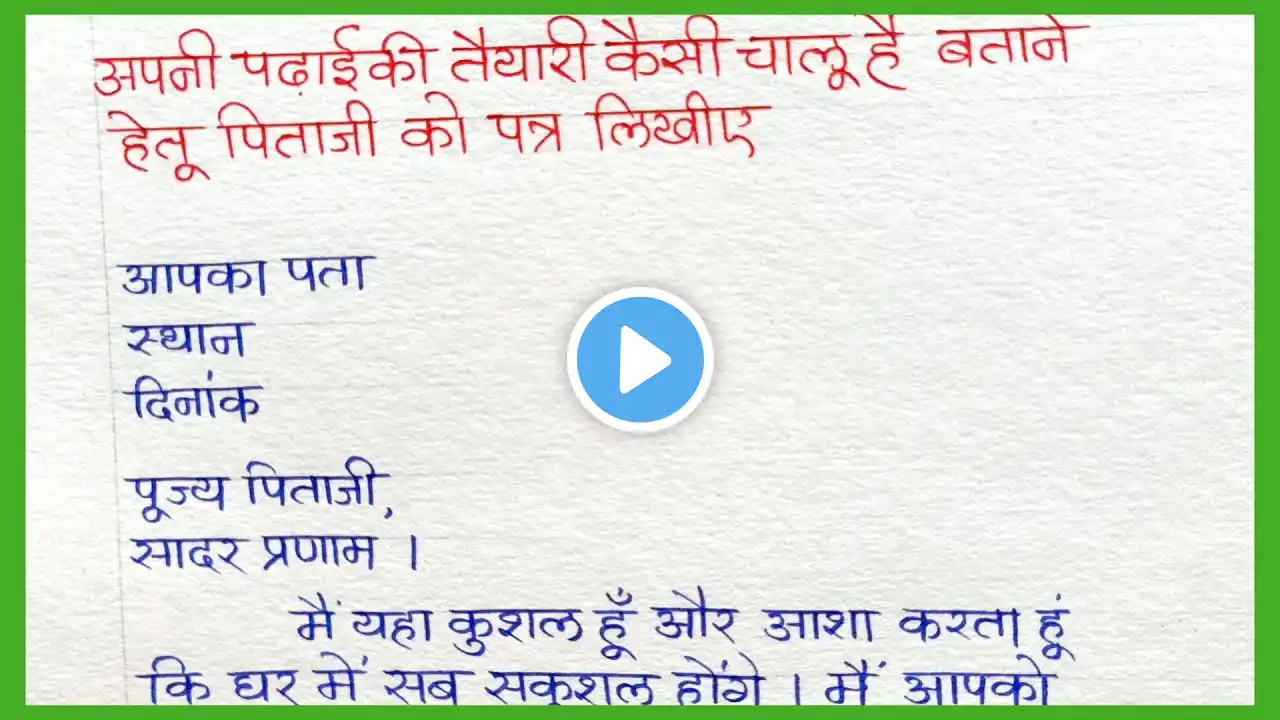 अपनी पढ़ाई की तैयारी कैसी चालू है बताने
हेतू पिताजी को पत्र लिखीए
आपका पता
स्थान
दिनांक
पूज्य पिताजी,
सादर प्रणाम ।
मैं यहा कुशल हूँ और आशा करता हूं
कि घर में सब सकुशल होंगे । मैं आपको